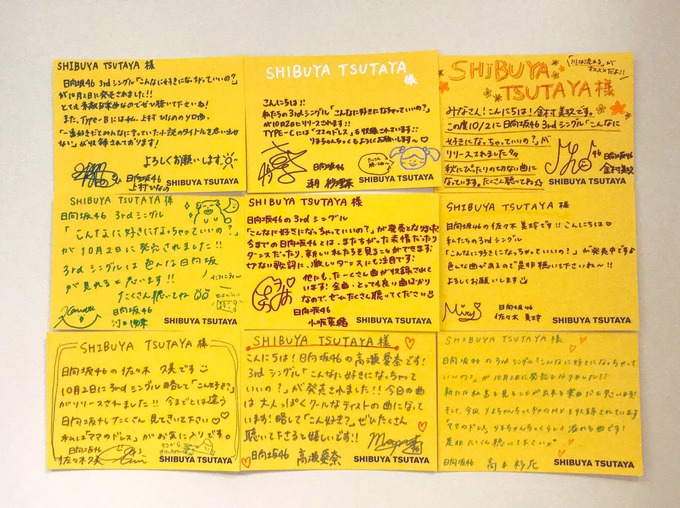 SHIBUYA TSUTAYA 様
日向坂46 3rdシングル「こんなに好きになっちゃっていいの?」
が10月2日に発売されました!!
とても素敵な楽曲なのでぜひ聴いて下さいね!
また、Type-Bには私、上村ひなののソロ曲、
「一番好きだとみんなに言っていた小説のタイトルを思い出せ
ない」が収録されております!
よろしくお願いします
日向坂46
上村ひなの
SHIBUYA TSUTAYA
SHIBUYA TSUTAYA 様
こんにちは!!
私たちの3rdシングル「こんなに好きになっちゃっていいの?」
が10月2日にリリースされます!!
TYPE-Cには「ママのドレス」も収録されています!!
日向坂46
SHIBUYA TSUTAYA
「川は流れる」が
オススメだよ!!
SHIBUYA
TSUTAYA 様
みなさん!こんにちは!金村美玖です。
この度10/2に日向坂46 3rdシングル「こんなに
好きになっちゃっていいの?」が
リリースされました
秋にぴったりの切ない曲に
なっています。たくさん聴いてね
日向坂46
金村美玖
SHIBUYA TSUTAYA
SHIBUYA TSUTAYA 様
日向坂46 3rdシングル
「こんなに好きになっちゃっていいの?」
が10月2日に発売されました!!
3rdシングルは色んな日向坂
が見れると思います!!
たくさん聴いてね
日向坂46
SHIBUYA TSUTAYA
SHIBUYA TSUTAYA 様
日向坂46の3rdシングル
「こんなに好きになっちゃっていいの?」が発売となりました
今までの日向坂46とは、またちがった表情だったり
ダンスだったり、新しい私たちを見ることができます
切ない歌詞に、激しいダンスにも注目です!
他にも、たーくさん曲が収録されて
います!全曲、とっても良い曲ばかり
なので、ぜひたくさん聴いてください
日向坂46
小坂菜緒
SHIBUYA TSUTAYA
SHIBUYA TSUTAYA 様
日向坂46の佐々木美玲です!!こんにちは
私たちの3rdシングル
「こんなに好きになっちゃっていいの?」が発売中です
色んな曲があるので是非聴いて下さいね〜!!
よろしくお願いします
日向坂46
佐々木美玲
SHIBUYA TSUTAYA
SHIBUYA TSUTAYA 様
日向坂46の佐々木久美です
10月2日に3rdシングル略して「こんな好き?」
がリリースされました!!今までとは違う
日向坂46たくさん見ていて下さい
私は「ママのドレス」がお気に入りです。
日向坂46
佐々木久美
SHIBUYA TSUTAYA
SHIBUYA TSUTAYA 様
こんにちは!日向坂46の高瀬愛奈です!
3rdシングル「こんなに好きになっちゃって
いいの?」が発売されました!!今回の曲
は大人っぽくクールなテイストの曲になって
います!略して「こんな好き?」ぜひたくさん
聴いて下さると嬉しいです!!
日向坂46 高瀬愛奈
SHIBUYA TSUTAYA
SHIBUYA TSUTAYA 様
日向坂46の3rdシングル「こんなに好きになっちゃって
いいの?」が10月2日に発売となりました!!
日向坂46
SHIBUYA TSUTAYA